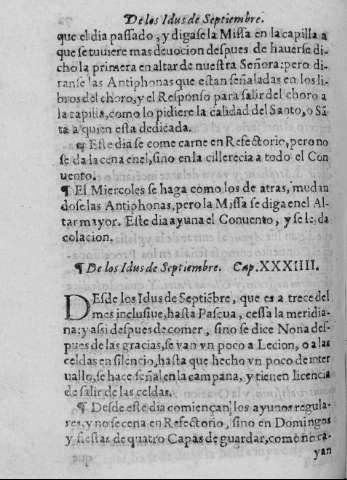 De los Idus de Septiembre.
que el dia passado, y digase la Missa en la capilla a
que se tuuiere mas deuocion despues de hauerse di-
cho la primera en altar de nuestra Señora: pero di-
ranse las Antiphonas que estan señaladas en los li-
bros del choro, y el Responso para salir del choro a
la capilla, como lo pidiere la calidad del Santo, o Sã
ta a quien esta dedicada.
¶ Este dia se come carne en Refectorio, pero no
se da la cena en el, sino en la cillerecia a todo el Con
uento.
¶ El Miercoles se haga como los de atras, mudan
dose las Antiphonas, pero la Missa se diga en el Al-
tar mayor. Este dia ayuna el Conuento, y se le da
colacion.
¶ De los Idus de Septiembre. Cap. XXXIIII.
DEsde los Idus de Septiẽbre, que es a trece del
mes inclusiue, hasta Pascua, cessa la meridia-
na: y assi despues de comer, sino se dice Nona des-
pues de las gracias, se van vn poco a Lecion, o a las
celdas en silencio, hasta que hecho vn poco de inter
uallo, se hace señal en la campana, y tienen licencia
de salir de las celdas.
¶ Desde este dia comiençan los ayunos regula-
res, y no se cena en Refectorio, sino en Domingos
y fiestas de quatro Capas de guardar, como no ca-
yan